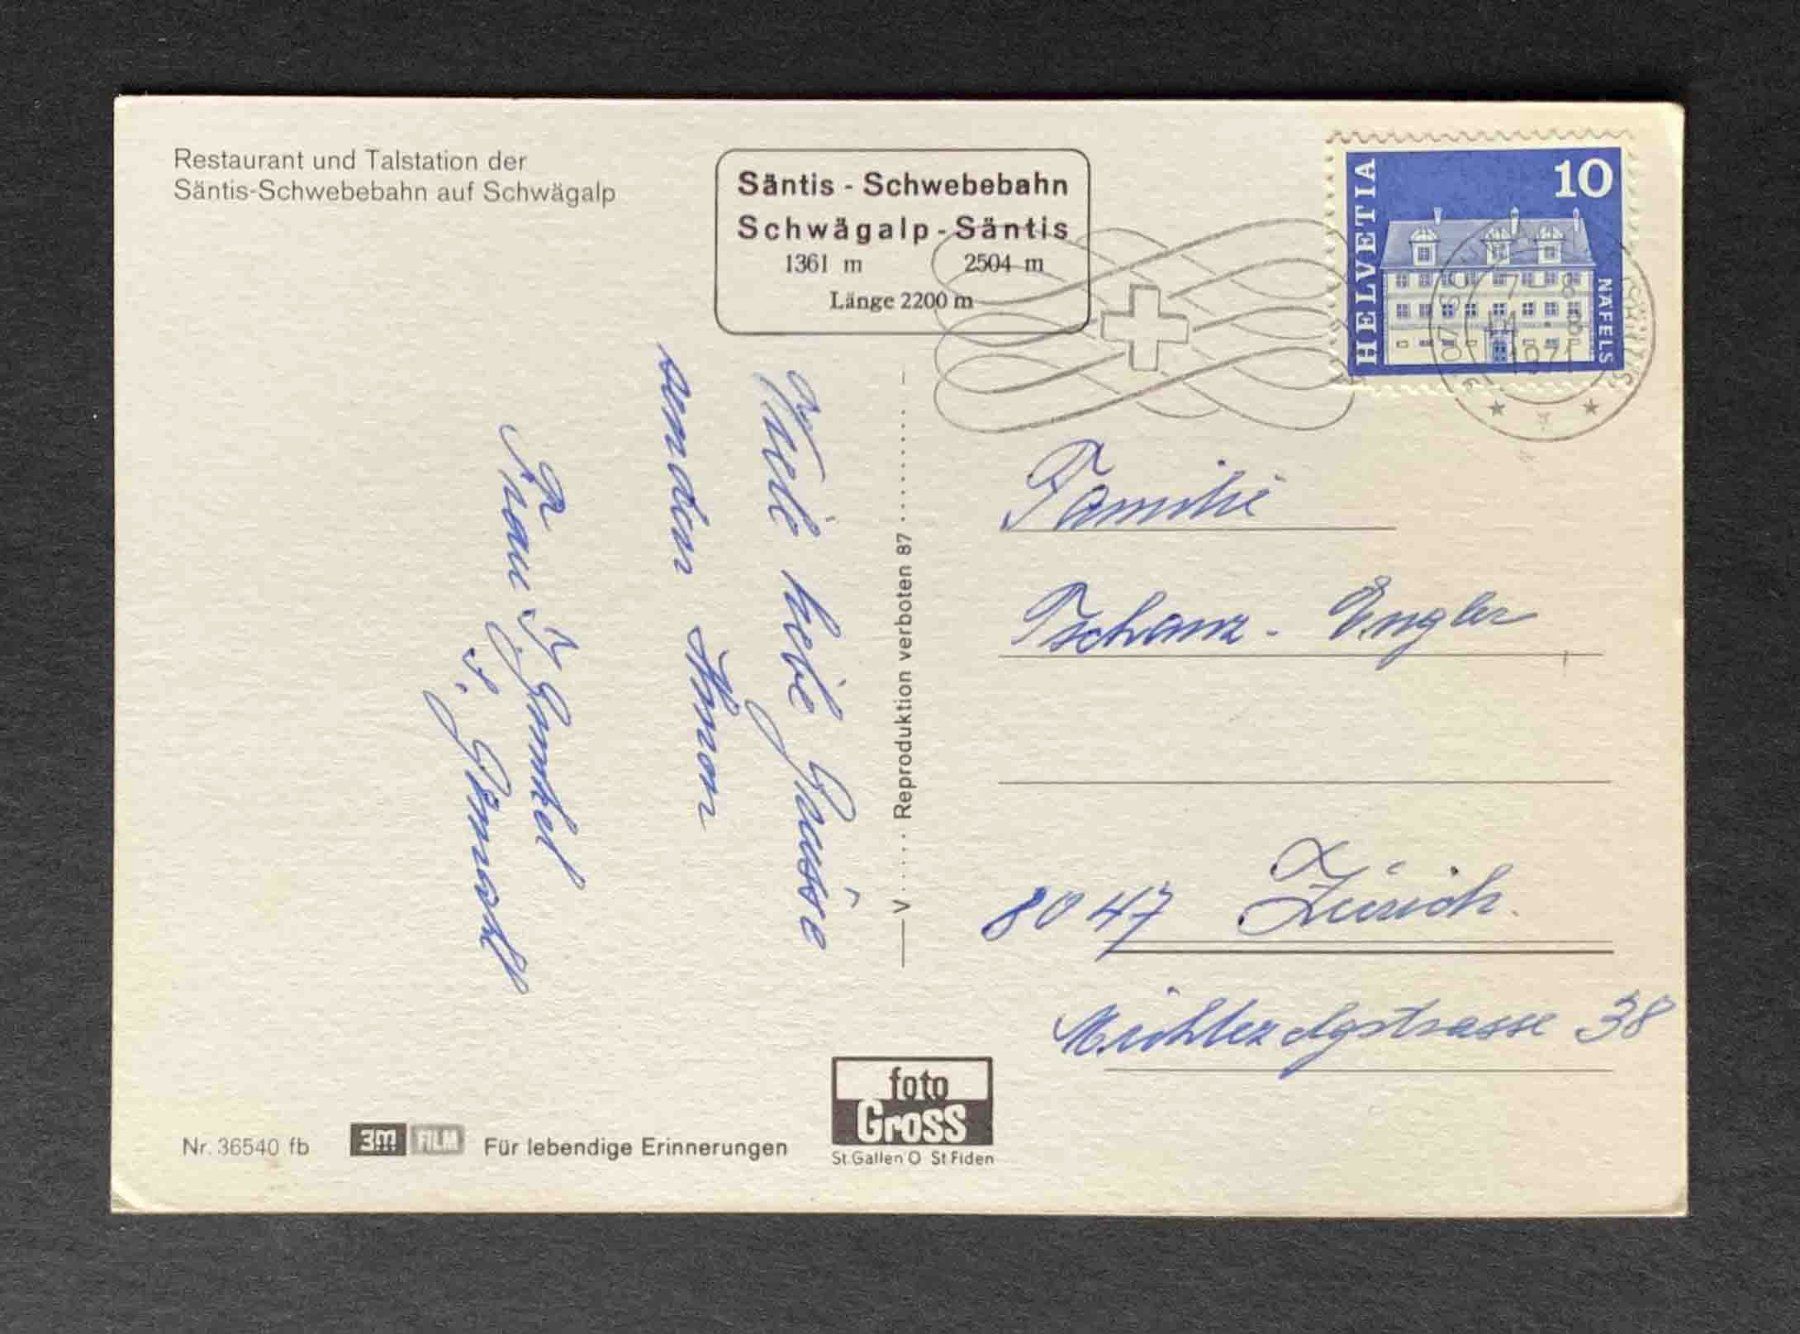 Restaurant und Talstation der
Säntis-Schwebebahn auf Schwägalp
Säntis - Schwebebahn
Schwägalp - Säntis
1361 m 2504 m
Länge 2200 m
HELVETIA
10
NÄFELS
1971
Viele liebe Grüsse
senden Ihnen
Frau
Reproduktion verboten 87
V
Familie
Tschanz - Engler
8047 Zürich.
38
Nr. 36540 fb
3M FILM Für lebendige Erinnerungen
foto
Gross
St.Gallen O St Fiden